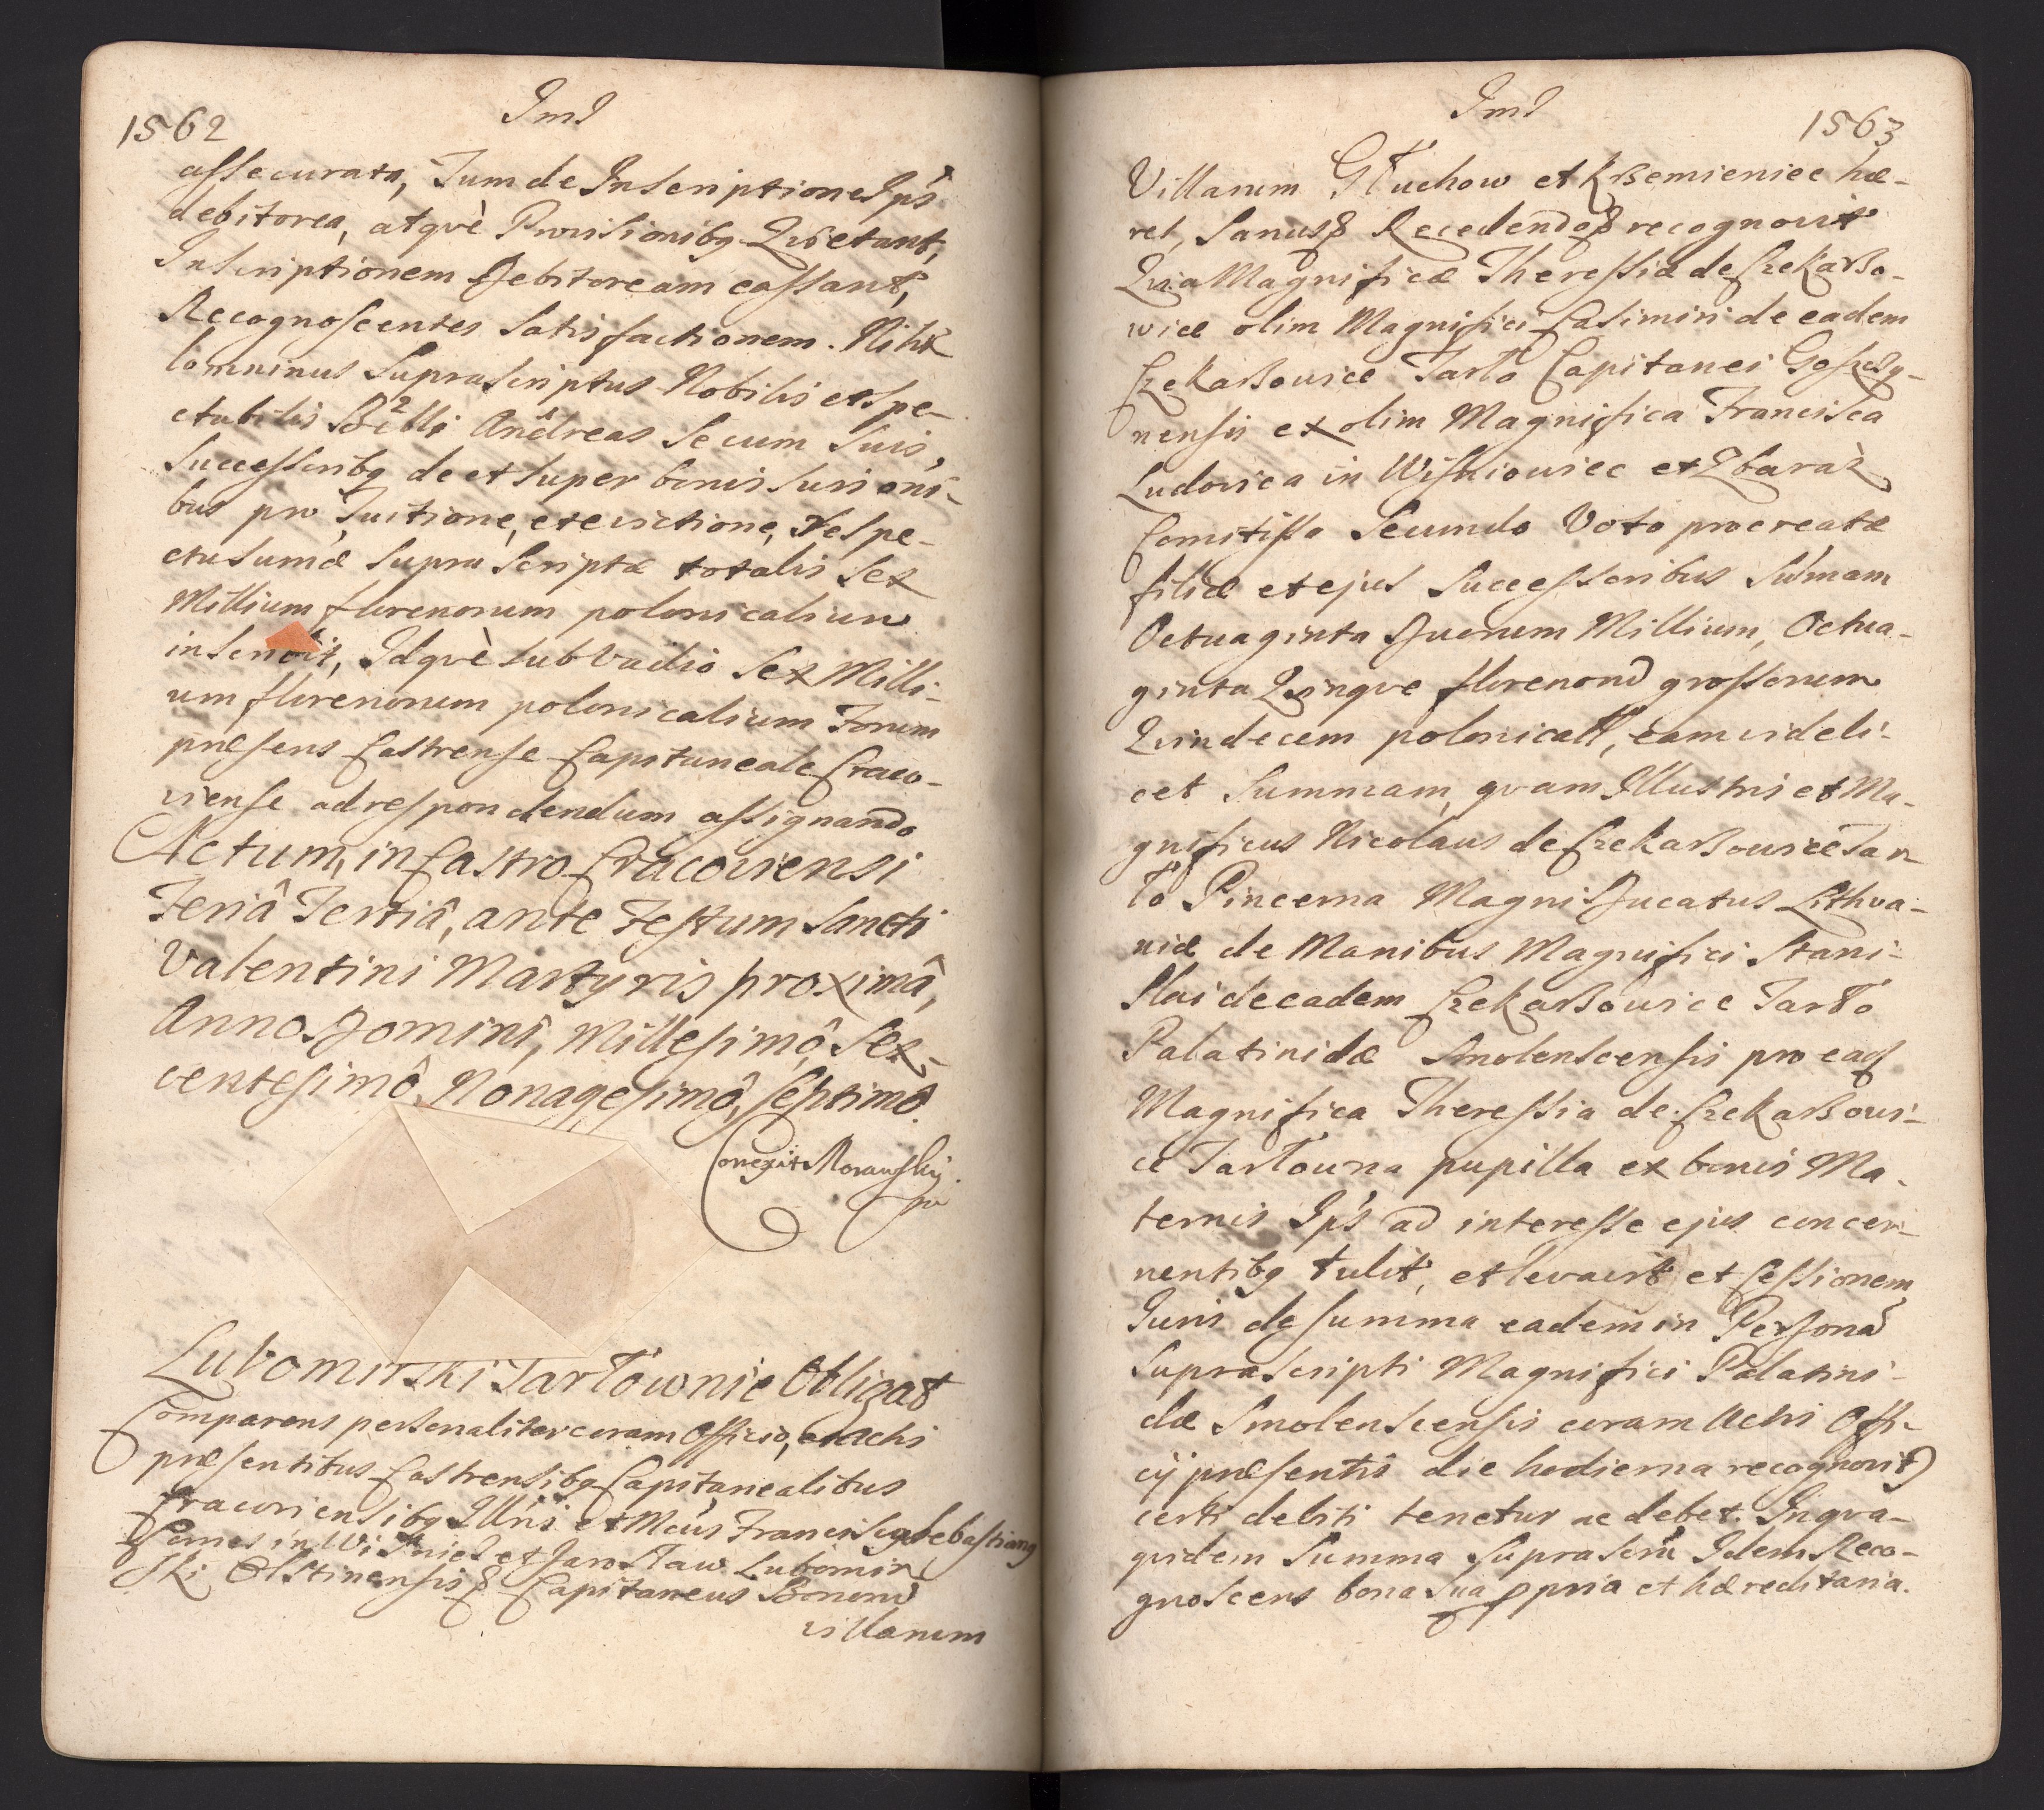 1562
Ind
assecurata, Tum de Inscriptione Ips
debitorea, atqvè Provisionibq Qvietant,
Inscriptionem Debitoream cassant,
Recognoscentes Satisfactionem. Nihi
lominus Suprascriptus Nobilis et Spe-
ctabilis Andreas Secum Suis,
Successoribq de et super bonis suis oni-
bus pro Tuitione, et evictione, respe-
ctu sumæ supra scriptæ totalis Sex
Millium florenorum polonicalium
inscribit, Idqvè sub vadio Sex Milli-
um florenorum polonicalium Forum
præsens Castrense Capitaneale Craco-
viense ad respondendum assignando
Actum, in Castro Cracoviensi
Feriâ Tertiâ, ante Festum Sancti
Valentini Martyris proximâ,
Anno Domini, Millesimô, Sex-
centesimô, Nonagesimô, Septimô.
Correxit Morawskij
mp
Lubomirski Tarłownie Obligat
Comparens personaliter coram Officio, et Actis
præsentibus Castrensibq Capitanealibus
Cracoviensibq Illris et Mcus Franciscus Sebastianq
Comes in Wisnicz et Jarosław Lubomir
ski Olstinensis & Capitaneus Bonord
villarum
Ind
1563
Villarum Głuchow et Krzemieniec hæ-
res, Sanus & Recedendo & recognovit
Qvia Magnificæ Theressiæ de Czekarzo-
wice olim Magnifici Casimiri de eadem
Czekarzowice Tarło Capitanei Goszczy-
nensis ex olim Magnifica Francisca
Ludovica in Wisniowiec et Zbaraz
Comitissa Secundo Voto procreatæ
filiæ et ejus Successoribus Sumam
Octuaginta Duorum Millium, Octua-
ginta Qvinqve florenord grossorum
Qvindecem polonicall, eam videli-
cet Summam, qvam Illustris et Ma-
gnificus Nicolaus de Czekarzowice Tar
ło Pincerna Magni Ducatus Lithva-
niæ de Manibus Magnifici Stani-
slai de eadem Czekarzowice Tarło
Palatinidæ Smolenscensis pro ead
Magnifica Theressia de Czekarzowi-
ce Tarłowna pupilla ex bonis Ma-
ternis Ips ad interesse ejus concer-
nentibq tulit, et levavit et Cessionem
Juris de summa eadem in Personã
Suprascripti Magnifici Palatini-
dæ Smolenscensis coram Actis Offi-
cij præsentis die hodierna recognovit)
certi debiti tenetur ac debet. In qva-
qvidem Summa suprascrã Idem Reco-
gnoscens bona sua ppria et hæreditaria.